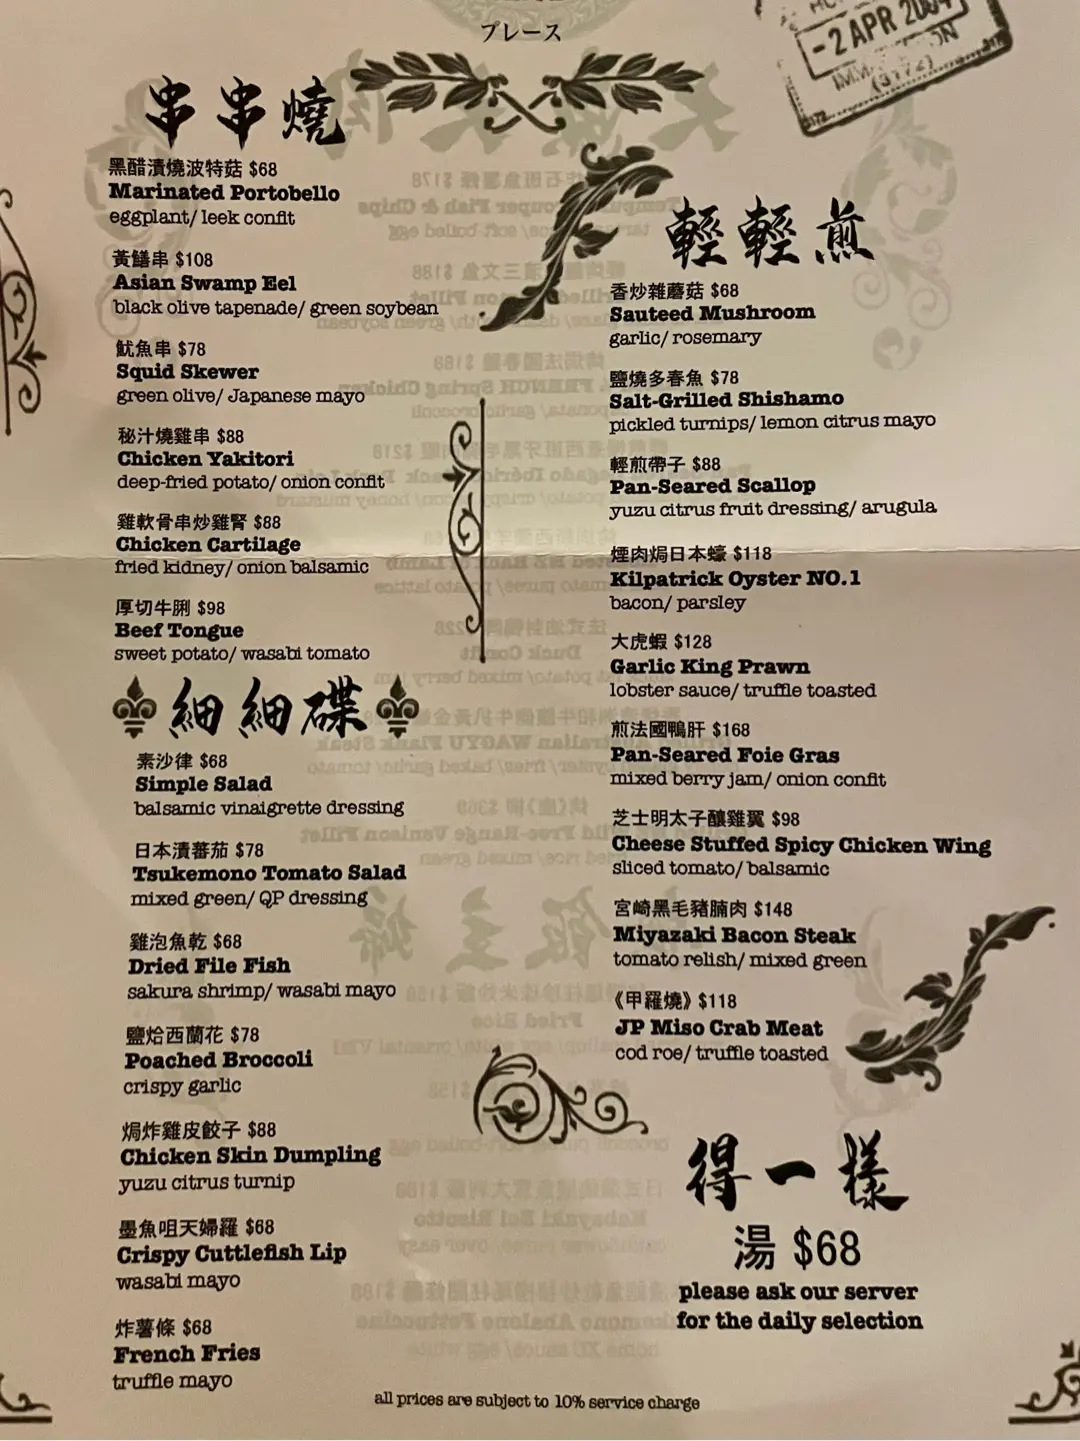 プレース
-2 APR 2004
串串燒
黑醋漬燒波特菇 $68
Marinated Portobello
eggplant/ leek confit
黃鱔串 $108
Asian Swamp Eel
black olive tapenade/ green soybean
魷魚串 $78
Squid Skewer
green olive/ Japanese mayo
秘汁燒雞串 $88
Chicken Yakitori
deep-fried potato/ onion confit
雞軟骨串炒雞腎 $88
Chicken Cartilage
fried kidney/ onion balsamic
厚切牛脷 $98
Beef Tongue
sweet potato/ wasabi tomato
細細碟
素沙律 $68
Simple Salad
balsamic vinaigrette dressing
日本漬蕃茄 $78
Tsukemono Tomato Salad
mixed green/ QP dressing
雞泡魚乾 $68
Dried File Fish
sakura shrimp/ wasabi mayo
鹽烚西蘭花 $78
Poached Broccoli
crispy garlic
焗炸雞皮餃子 $88
Chicken Skin Dumpling
yuzu citrus turnip
墨魚咀天婦羅 $68
Crispy Cuttlefish Lip
wasabi mayo
炸薯條 $68
French Fries
truffle mayo
輕輕煎
香炒雜蘑菇 $68
Sauteed Mushroom
garlic/ rosemary
鹽燒多春魚 $78
Salt-Grilled Shishamo
pickled turnips/ lemon citrus mayo
輕煎帶子 $88
Pan-Seared Scallop
yuzu citrus fruit dressing/ arugula
煙肉焗日本蠔 $118
Kilpatrick Oyster NO.1
bacon/ parsley
大虎蝦 $128
Garlic King Prawn
lobster sauce/ truffle toasted
煎法國鴨肝 $168
Pan-Seared Foie Gras
mixed berry jam/ onion confit
芝士明太子釀雞翼 $98
Cheese Stuffed Spicy Chicken Wing
sliced tomato/ balsamic
宮崎黑毛豬腩肉 $148
Miyazaki Bacon Steak
tomato relish/ mixed green
《甲羅燒》$118
JP Miso Crab Meat
cod roe/ truffle toasted
得一樣
湯 $68
please ask our server
for the daily selection
all prices are subject to 10% service charge